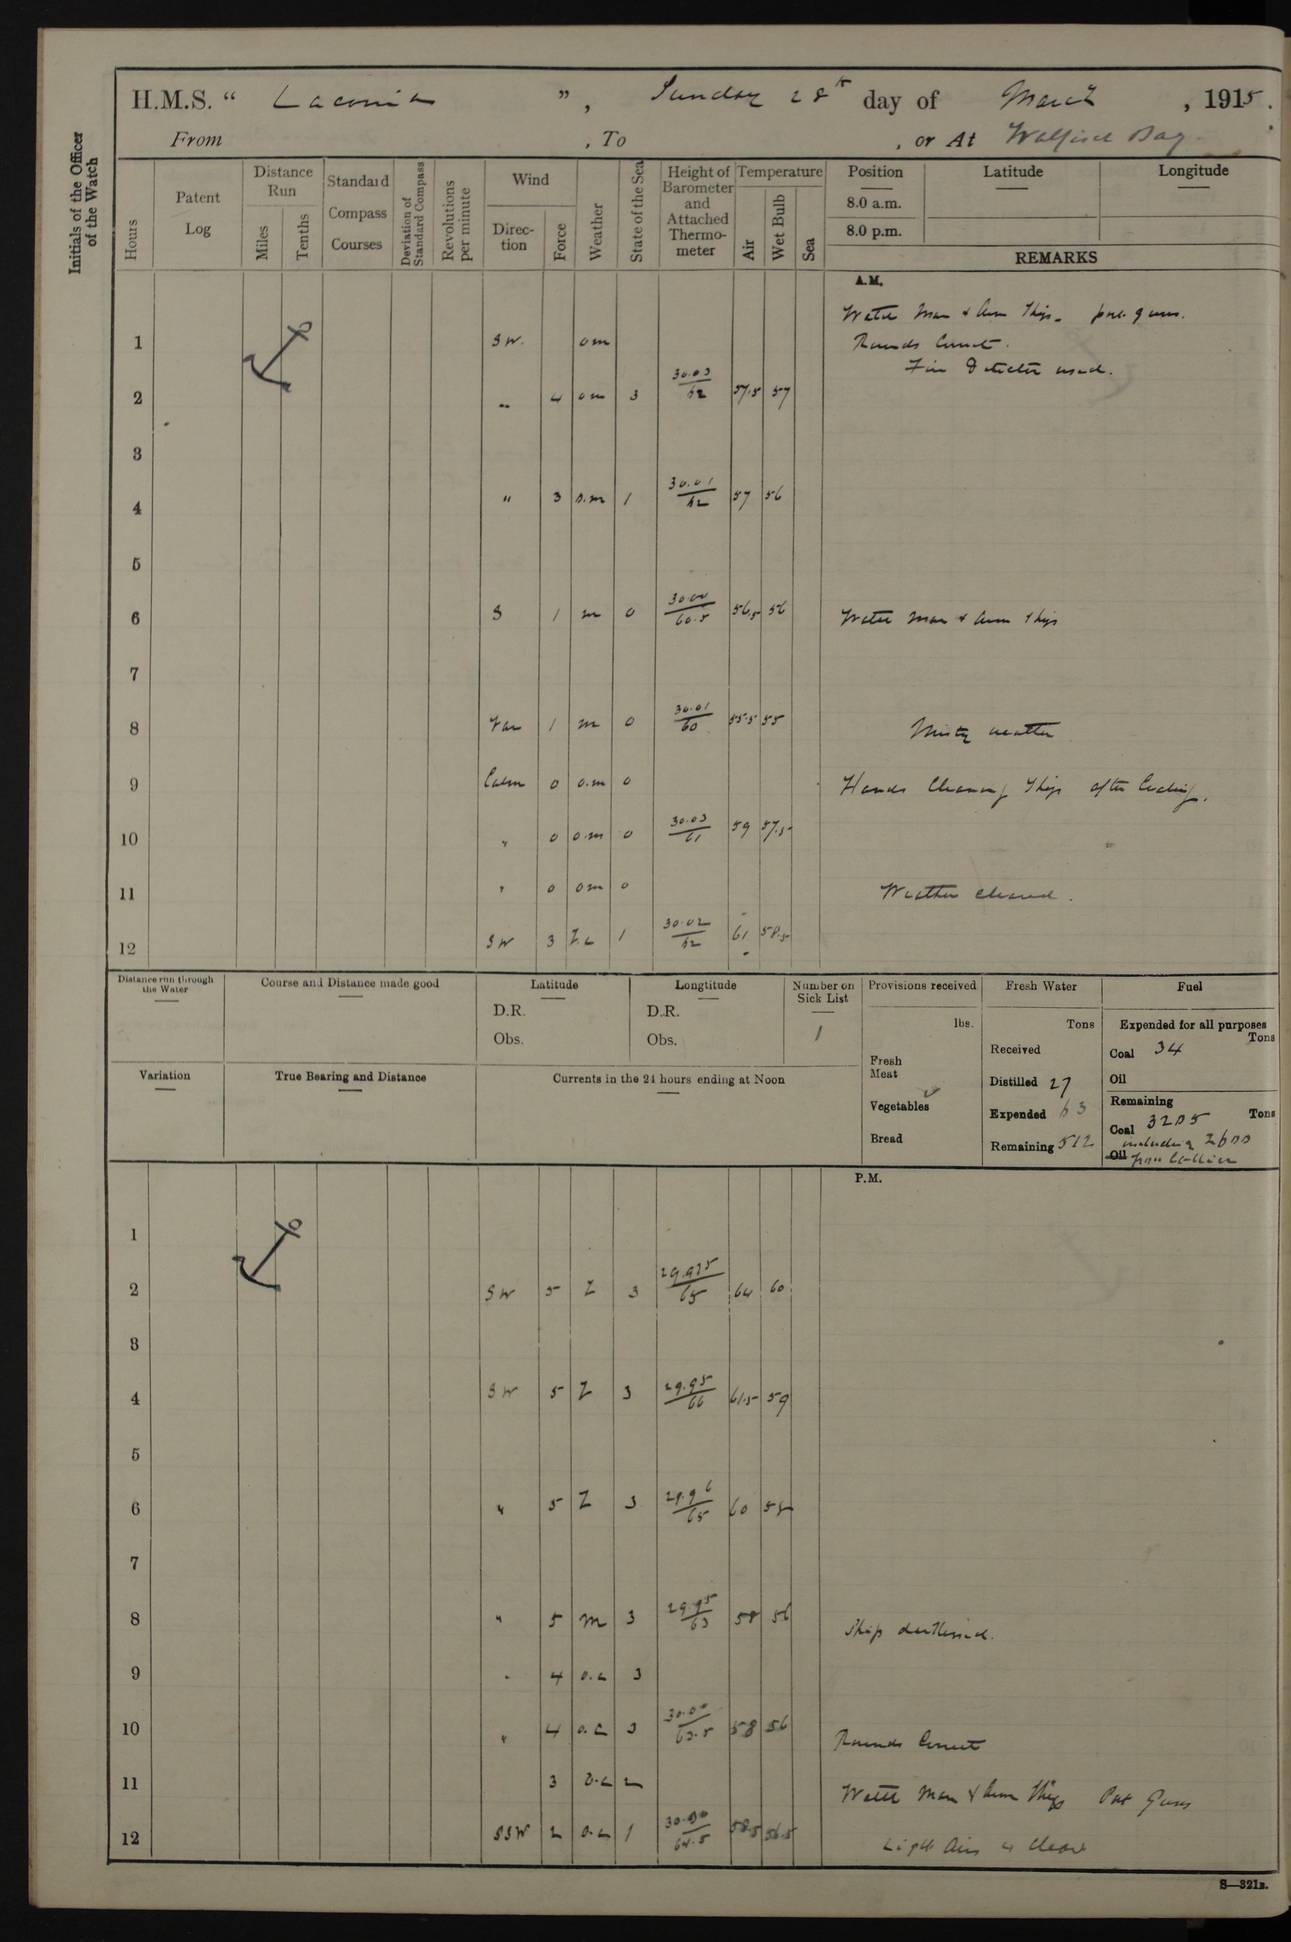 H.M.S. “ Laconia ”, Sunday 28th day of March, 1915.
From , To , or At Walfisch Bay
Initials of the Officer of the Watch
Hours
Patent Log
Distance Run
Miles
Tenths
Standard Compass Courses
Deviation of Standard Compass
Revolutions per minute
Wind
Direc-tion
Force
Weather
State of the Sea
Height of Barometer and Attached Thermo-meter
Temperature
Air
Wet Bulb
Sea
Position
8.0 a.m.
8.0 p.m.
Latitude
Longitude
REMARKS
A.M.
Watch Man & Arm Ship. port guns.
1 SW. om Rounds Correct.
Fire Detector used.
2 " 4 om 3 30.03/62 57.5 57
3
4 " 3 o.m 1 30.01/62 57 56
5
6 S 1 m 0 30.00/60.5 56.5 56 Watch Man & Arm Ship
7
8 Var 1 m 0 30.01/60 55.5 55 Misty weather
9 Calm 0 o.m 0 Hands Cleaning Ship after Coaling.
10 " 0 o.m 0 30.03/61 59 57.5
11 " 0 om 0 Weather cleared.
12 SW 3 Z.c 1 30.02/62 61 58.5
Distance run through the Water
Course and Distance made good
Latitude
D.R.
Obs.
Longtitude
D.R.
Obs.
Number on Sick List
1
Provisions received
lbs.
Fresh Meat
Vegetables
Bread
Fresh Water
Tons
Received
Distilled 27
Expended 63
Remaining 512
Fuel
Expended for all purposes
Tons
Coal 34
Oil
Remaining
Tons
Coal 3205
including 2600
Oil from Collier
Variation
True Bearing and Distance
Currents in the 24 hours ending at Noon
P.M.
1
2 SW 5 Z 3 29.975/65 64 60
3
4 SW 5 Z 3 29.95/66 61.5 59
5
6 " 5 Z 3 29.96/65 60 58
7
8 " 5 m 3 29.95/63 58 56 Ship darkened.
9 " 4 o.c 3
10 " 4 o.c 3 30.00/63.5 58 56 Rounds Correct
11 3 o.c 2 Watch Man & Arm Ship Port Guns
12 SSW 2 o.c 1 30.00/64.5 58.5 56.5 Light Airs & Clear
S—321B.